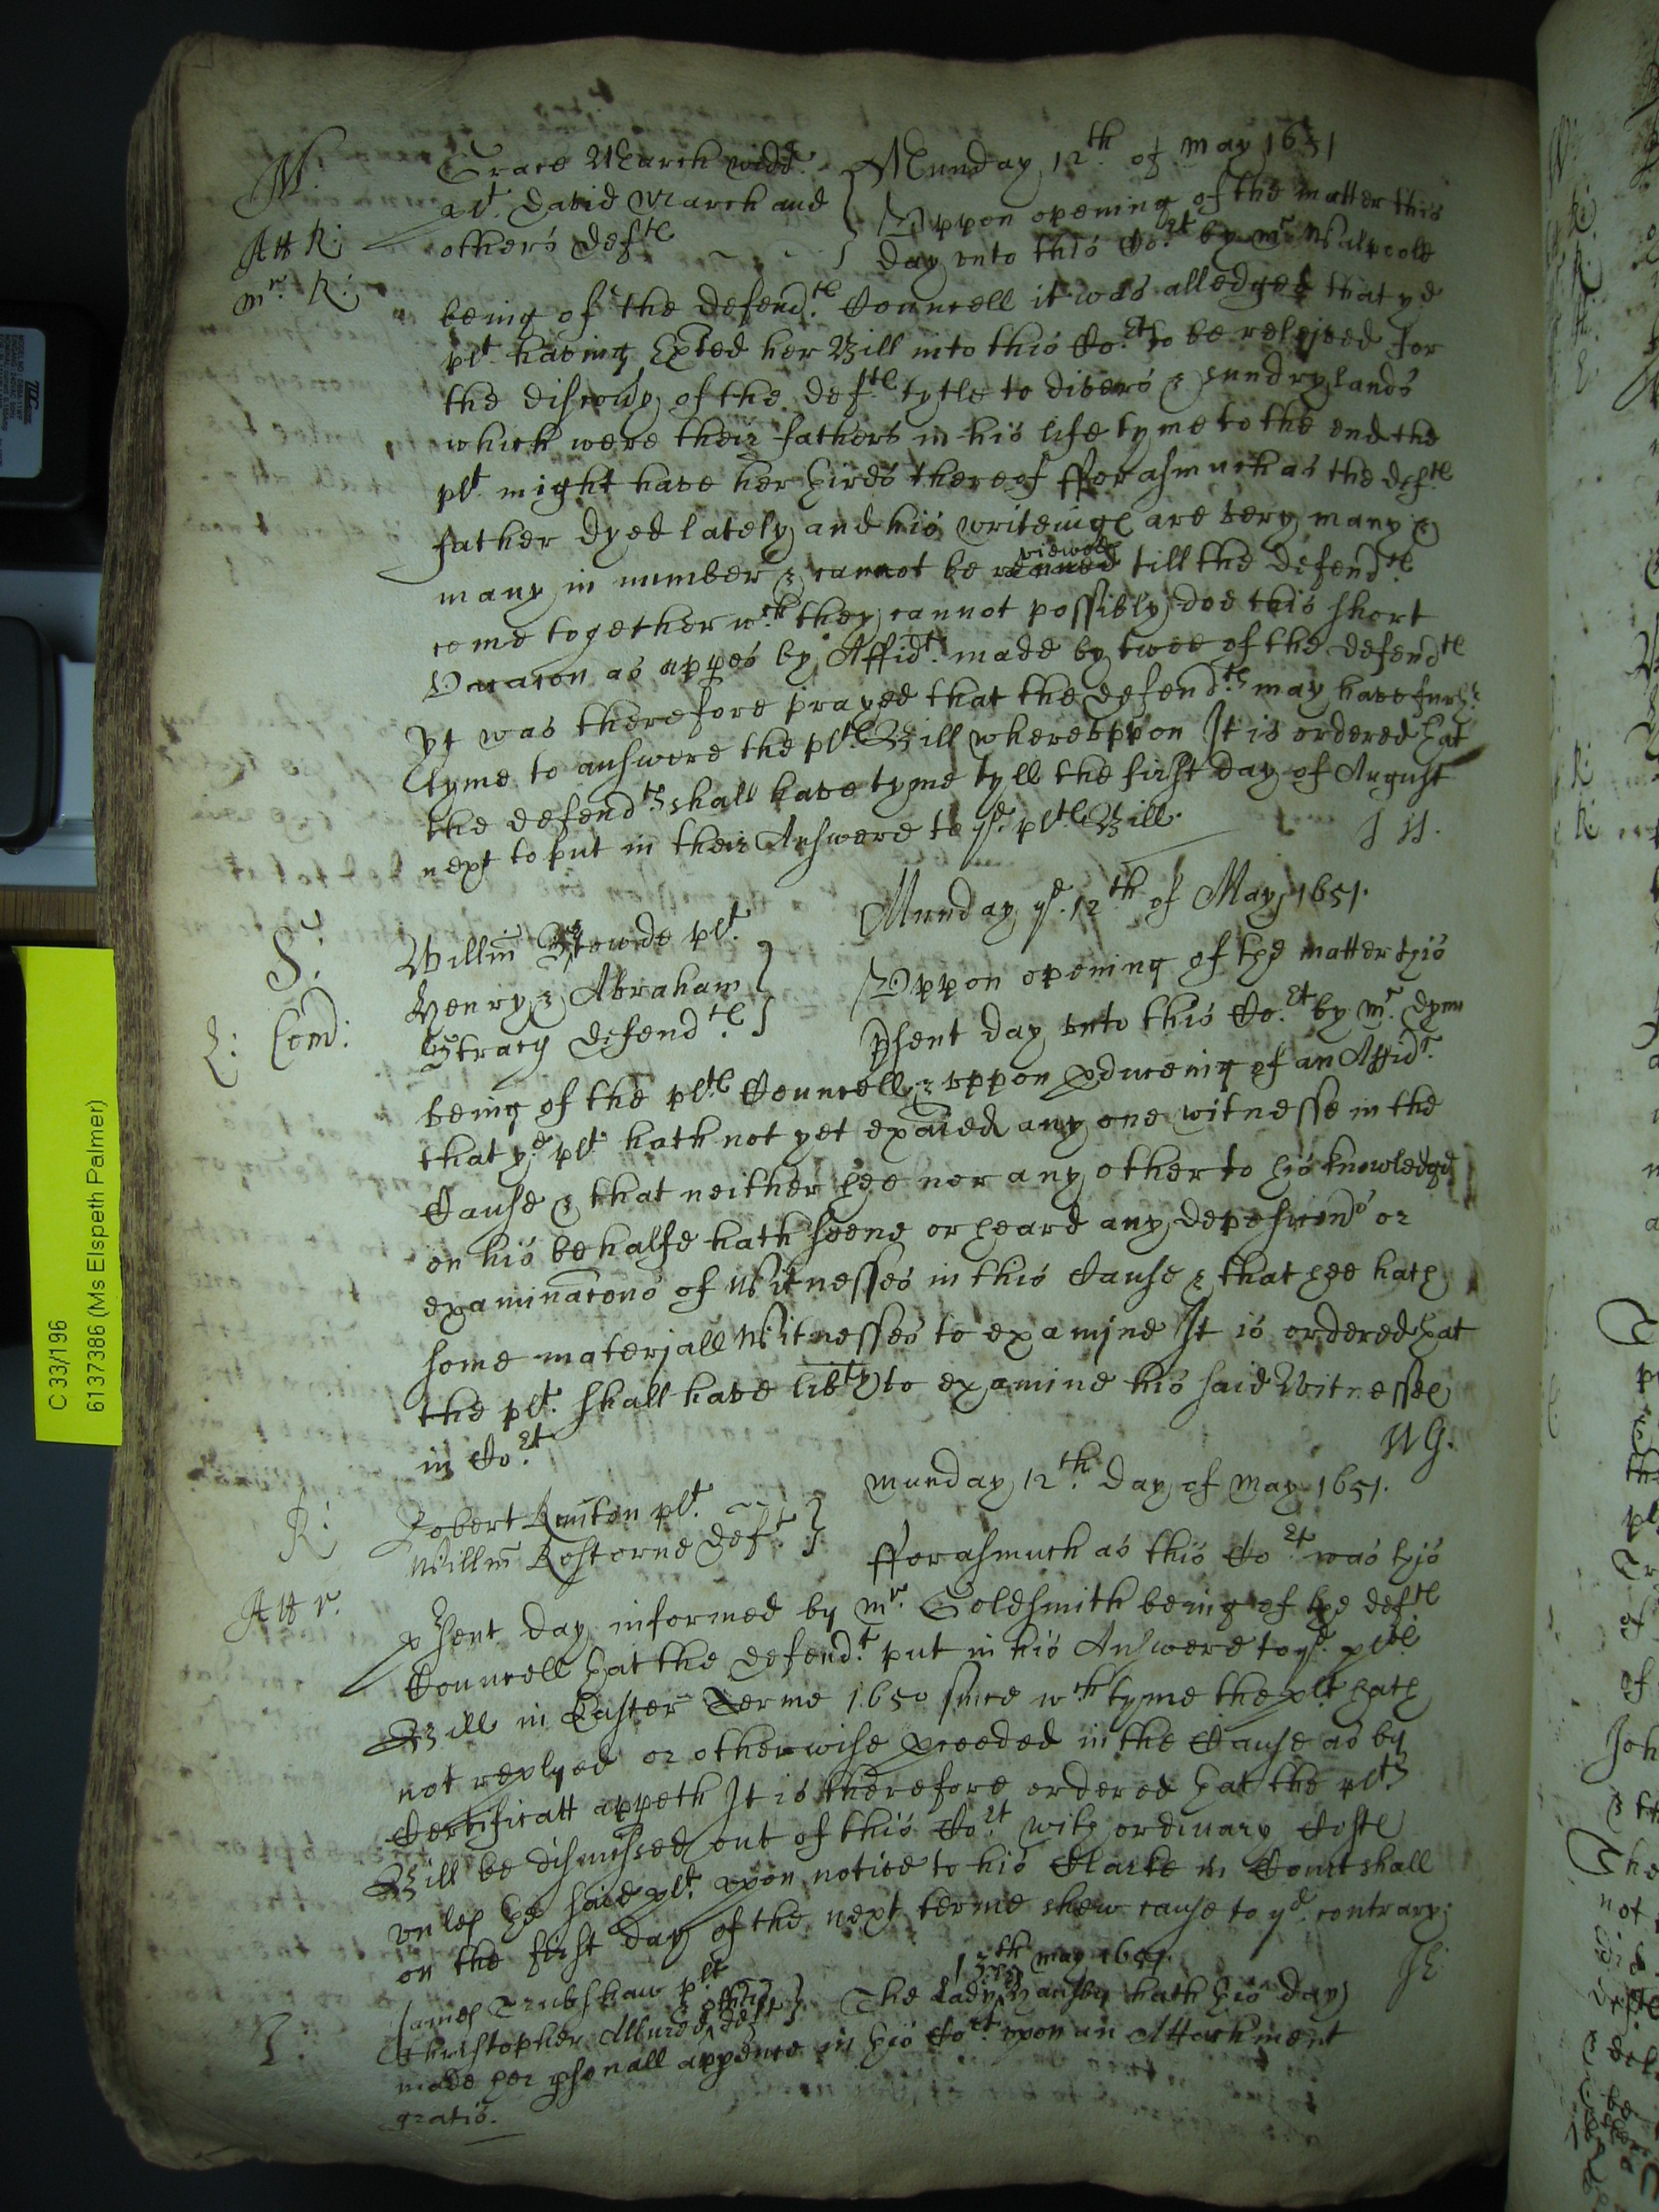 M.
Grace March widd.
plt. David March and
others deftes
Att R:
mr. R:
Munday 12th. of may 1651
Vppon opening of the matter this
day vnto this Co:rt by mr. Walpoole
being of the defend:tes Councell it was alledged that ye
plt. having exhited her Bill into this Co:rt to be releived for
the discovy of the def:tes tytle to divers & sundry lands
which were their fathers in his life tyme to the end the
plt. might have her thirds thereof fforasmuch as the deftes
father dyed lately and his writeinges are very many &
many in number & cannot be viewed till the defend:tes
come together wch they cannot possibly doe this short
Vacacon as appes by Affidt. made by twoe of the defendtes
Yt was therefore prayed that the defend:ts may have furthr
tyme to answere the pltes Bill wherevppon It is ordered that
the defend:ts shall have tyme tyll the first day of August
next to put in their Answere to ye. pltes Bill.
J H.
S:
L: Com:
Willm Stowde plt.
Henry & Abraham
Stracy defend:tes
Munday ye. 12th of May 1651.
Vppon opening of the matter this
psent day vnto this Co:rt by mr. dym
being of the pltes Councell & vppon pduceing of an Affidt.
that ye plt hath not yet exaied any one witnesse in the
Cause & that neither hee nor any other to his knowledge
on his behalfe hath seene or heard any deposicons or
examinacons of Witnesses in this Cause & that hee hath
some materjall Witnesses to examjne It is ordered that
the plt. shall have libty to examine his said Witnesses
in Co:rt
W G.
R:
Att r.
Robert Ranton plt.
Willm Rostorne deft.
munday 12th. day of may 1651.
fforasmuch as this Co:rt was this
psent day informed by mr. Goldsmith being of the deftes
Councell that the defend:t put in his Answere to ye. pltes
Bill in Easter Terme 1650 since wch tyme the plt hath
not replyed or otherwise pceeded in the Cause as by
Certificatt appeth It is therefore ordered that the plts
Bill be dismissed out of this Co:rt with ordinary Costes
vnles the said plt. vpon notice to his Clarke in Court shall
on the first day of the next terme shew cause to ye. contrary.
J E
T.
James Trubshaw plt
Christopher Allured & others defts
13th may 1651.
The Lady hath this day
made her psonall appence in this Cort vpon an Attachment
gratis.
C 33/196
6137386 (Ms Elspeth Palmer)